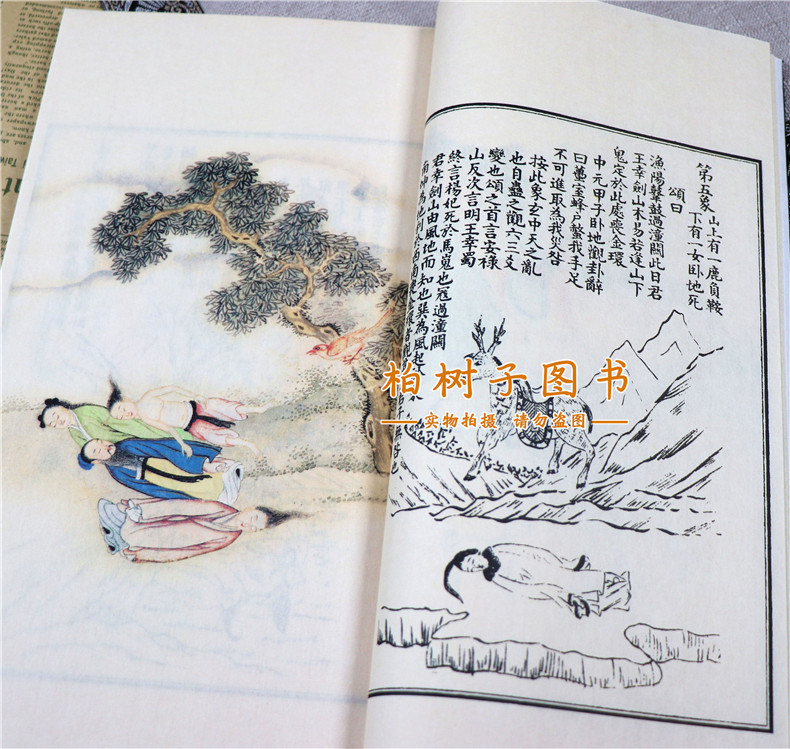 第五象 山上有一鹿負鞍
下有一女卧地死
頌曰
漁陽鼙鼓過潼關此日君
王幸劍山木易若逢山下
鬼定於此處喪金環
中元甲子卧地觀卦辭
曰蕙室蜂户螫我手足
不可進取為我災咎
按此象玄中天之亂
也自蠱之觀六三爻
變也頌之首言安禄
山反次言明王幸蜀
終言楊妃死於馬嵬也冦過潼關
君幸劍山由風地而知也巽為風起
柏树子图书
实物拍摄 请勿盗图